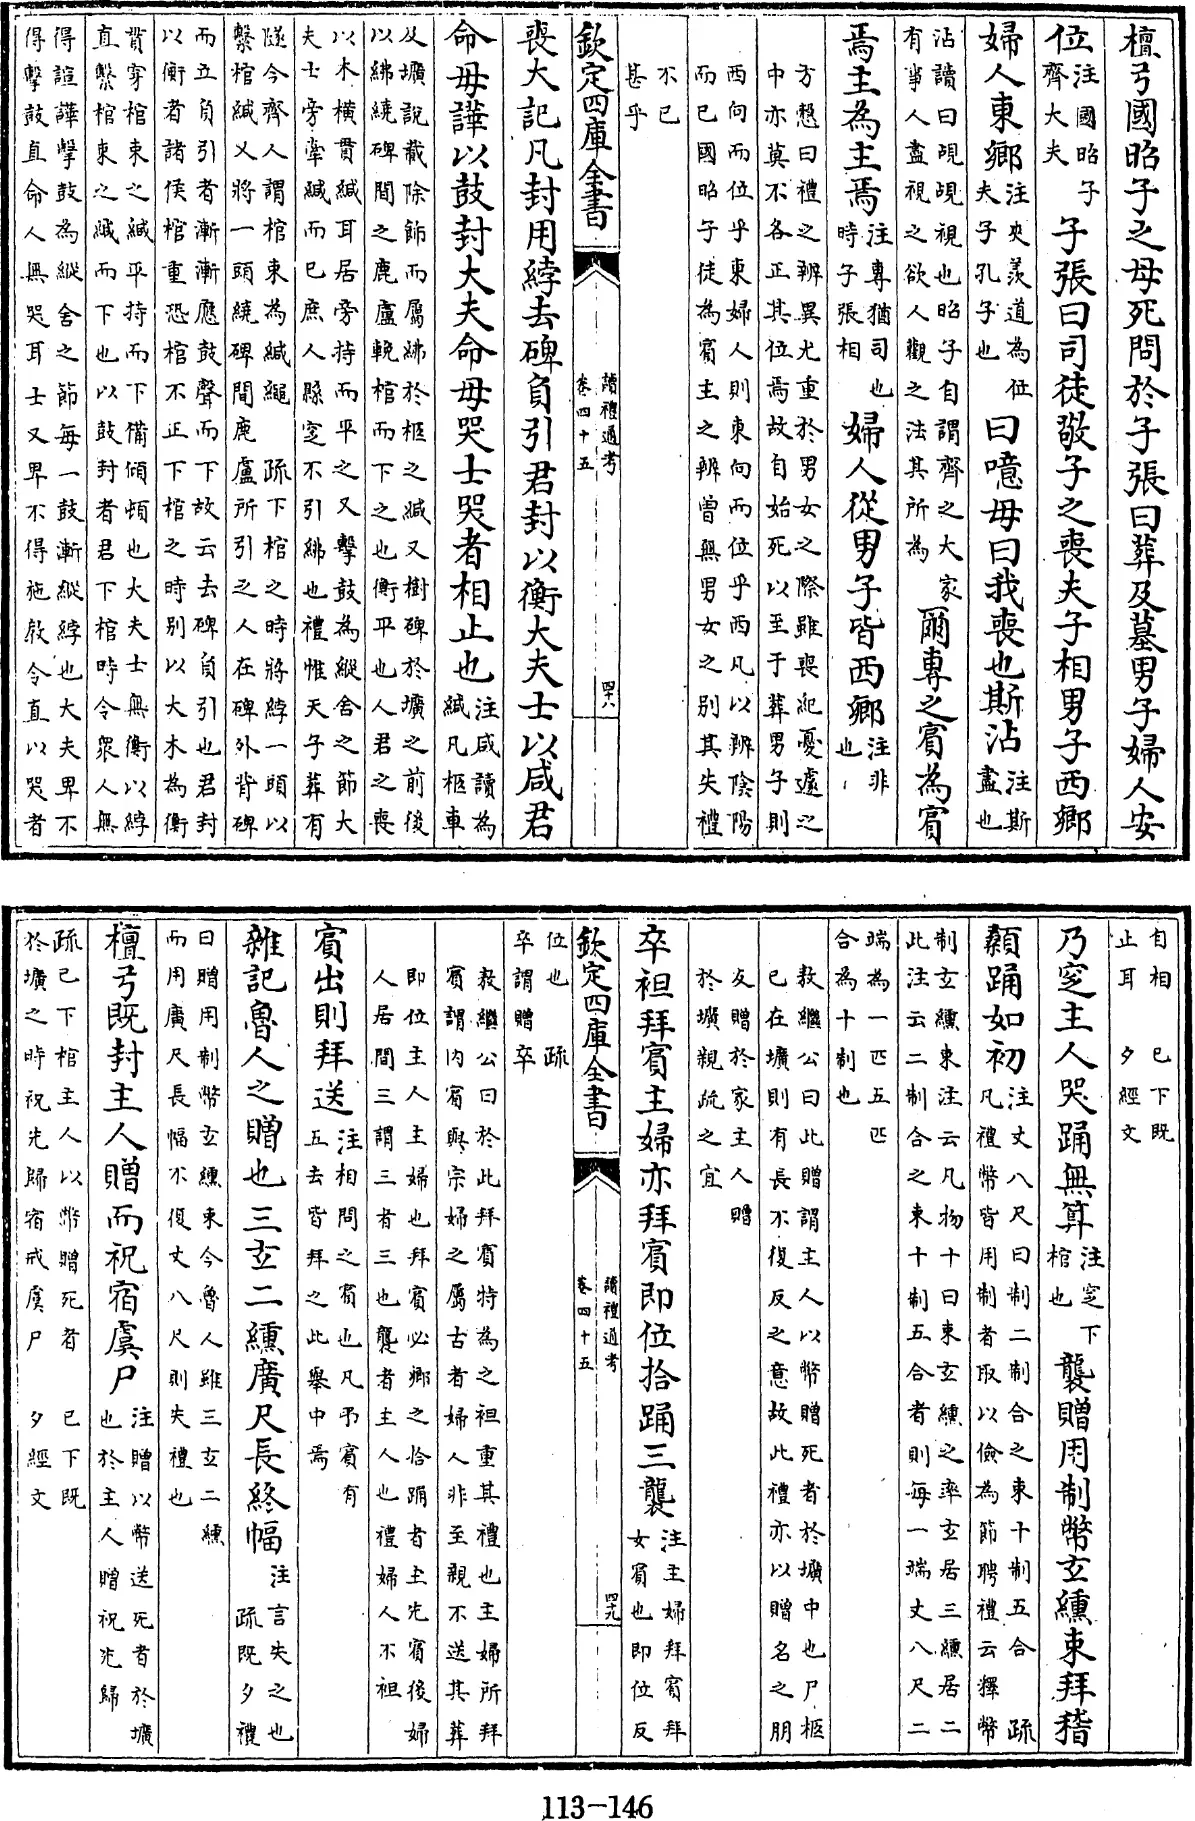 檀弓國昭子之母死問於子張曰葬及墓男子婦人安
位注國昭子齊大夫子張曰司徒敬子之喪夫子相男子西鄉
婦人東鄉注夾羨道為位夫子孔子也曰噫毋曰我喪也斯沾注斯盡也
沾讀曰覘覘視也昭子自謂齊之大家有事人盡視之欲人觀之法其所為爾專之賓為賓
焉主為主焉注專猶司也時子張相婦人從男子皆西鄉注非也
方慤曰禮之辨異尤重於男女之際雖喪紀憂遽之
中亦莫不各正其位焉故自始死以至于葬男子則
西向而位乎東婦人則東向而位乎西凡以辨陰陽
而已國昭子徒為賓主之辨曾無男女之別其失禮
不已
甚乎
欽定四庫全書
讀禮通考
卷四十五
四十八
喪大記凡封用綍去碑負引君封以衡大夫士以咸君
命毋譁以鼓封大夫命毋哭士哭者相止也注咸讀為緘凡柩車
及壙說載除飾而屬紼於柩之緘又樹碑於壙之前後
以紼繞碑間之鹿盧輓棺而下之也衡平也人君之喪
以木橫貫緘耳居旁持而平之又擊鼓為縱舍之節大
夫士旁牽緘而已庶人縣窆不引紼也禮惟天子葬有
隧今齊人謂棺束為緘繩 疏下棺之時將綍一頭以
繫棺緘又將一頭繞碑間鹿盧所引之人在碑外背碑
而立負引者漸漸應鼓聲而下故云去碑負引也君封
以衡者諸侯棺重恐棺不正下棺之時別以大木為衡
貫穿棺束之緘平持而下備傾頓也大夫士無衡以綍
直繫棺束之緘而下也以鼓封者君下棺時令衆人無
得諠譁擊鼓為縱舍之節每一鼓漸縱綍也大夫卑不
得擊鼓直命人無哭耳士又卑不得施敎令直以哭者
自相 已下既
止耳 夕經文
乃窆主人哭踊無算注窆下棺也襲贈用制幣玄纁束拜稽
顙踊如初注丈八尺曰制二制合之束十制五合 疏凡禮幣皆用制者取以儉為節聘禮云釋幣
制玄纁束注云凡物十曰束玄纁之率玄居三纁居二
此注云二制合之束十制五合者則每一端丈八尺二
端為一匹五匹
合為十制也
敖繼公曰此贈謂主人以幣贈死者於壙中也尸柩
已在壙則有長不復反之意故此禮亦以贈名之朋
友贈於家主人贈
於壙親疏之宜
卒袒拜賓主婦亦拜賓即位拾踊三襲注主婦拜賓拜女賓也即位反
欽定四庫全書
讀禮通考
卷四十五
四十九
位也 疏
卒謂贈卒
敖繼公曰於此拜賓特為之袒重其禮也主婦所拜
賓謂內賓與宗婦之屬古者婦人非至親不送其葬
即位主人主婦也拜賓必鄉之拾踊者主先賓後婦
人居間三謂三者三也襲者主人也禮婦人不袒
賓出則拜送注相問之賓也凡弔賓有五去皆拜之此舉中焉
雜記魯人之贈也三玄二纁廣尺長終幅注言失之也 疏既夕禮
曰贈用制幣玄纁束今魯人雖三玄二纁
而用廣尺長幅不復丈八尺則失禮也
檀弓既封主人贈而祝宿虞尸注贈以幣送死者於壙也於主人贈祝先歸
疏已下棺主人以幣贈死者 已下既
於壙之時祝先歸宿戒虞尸 夕經文
113-146